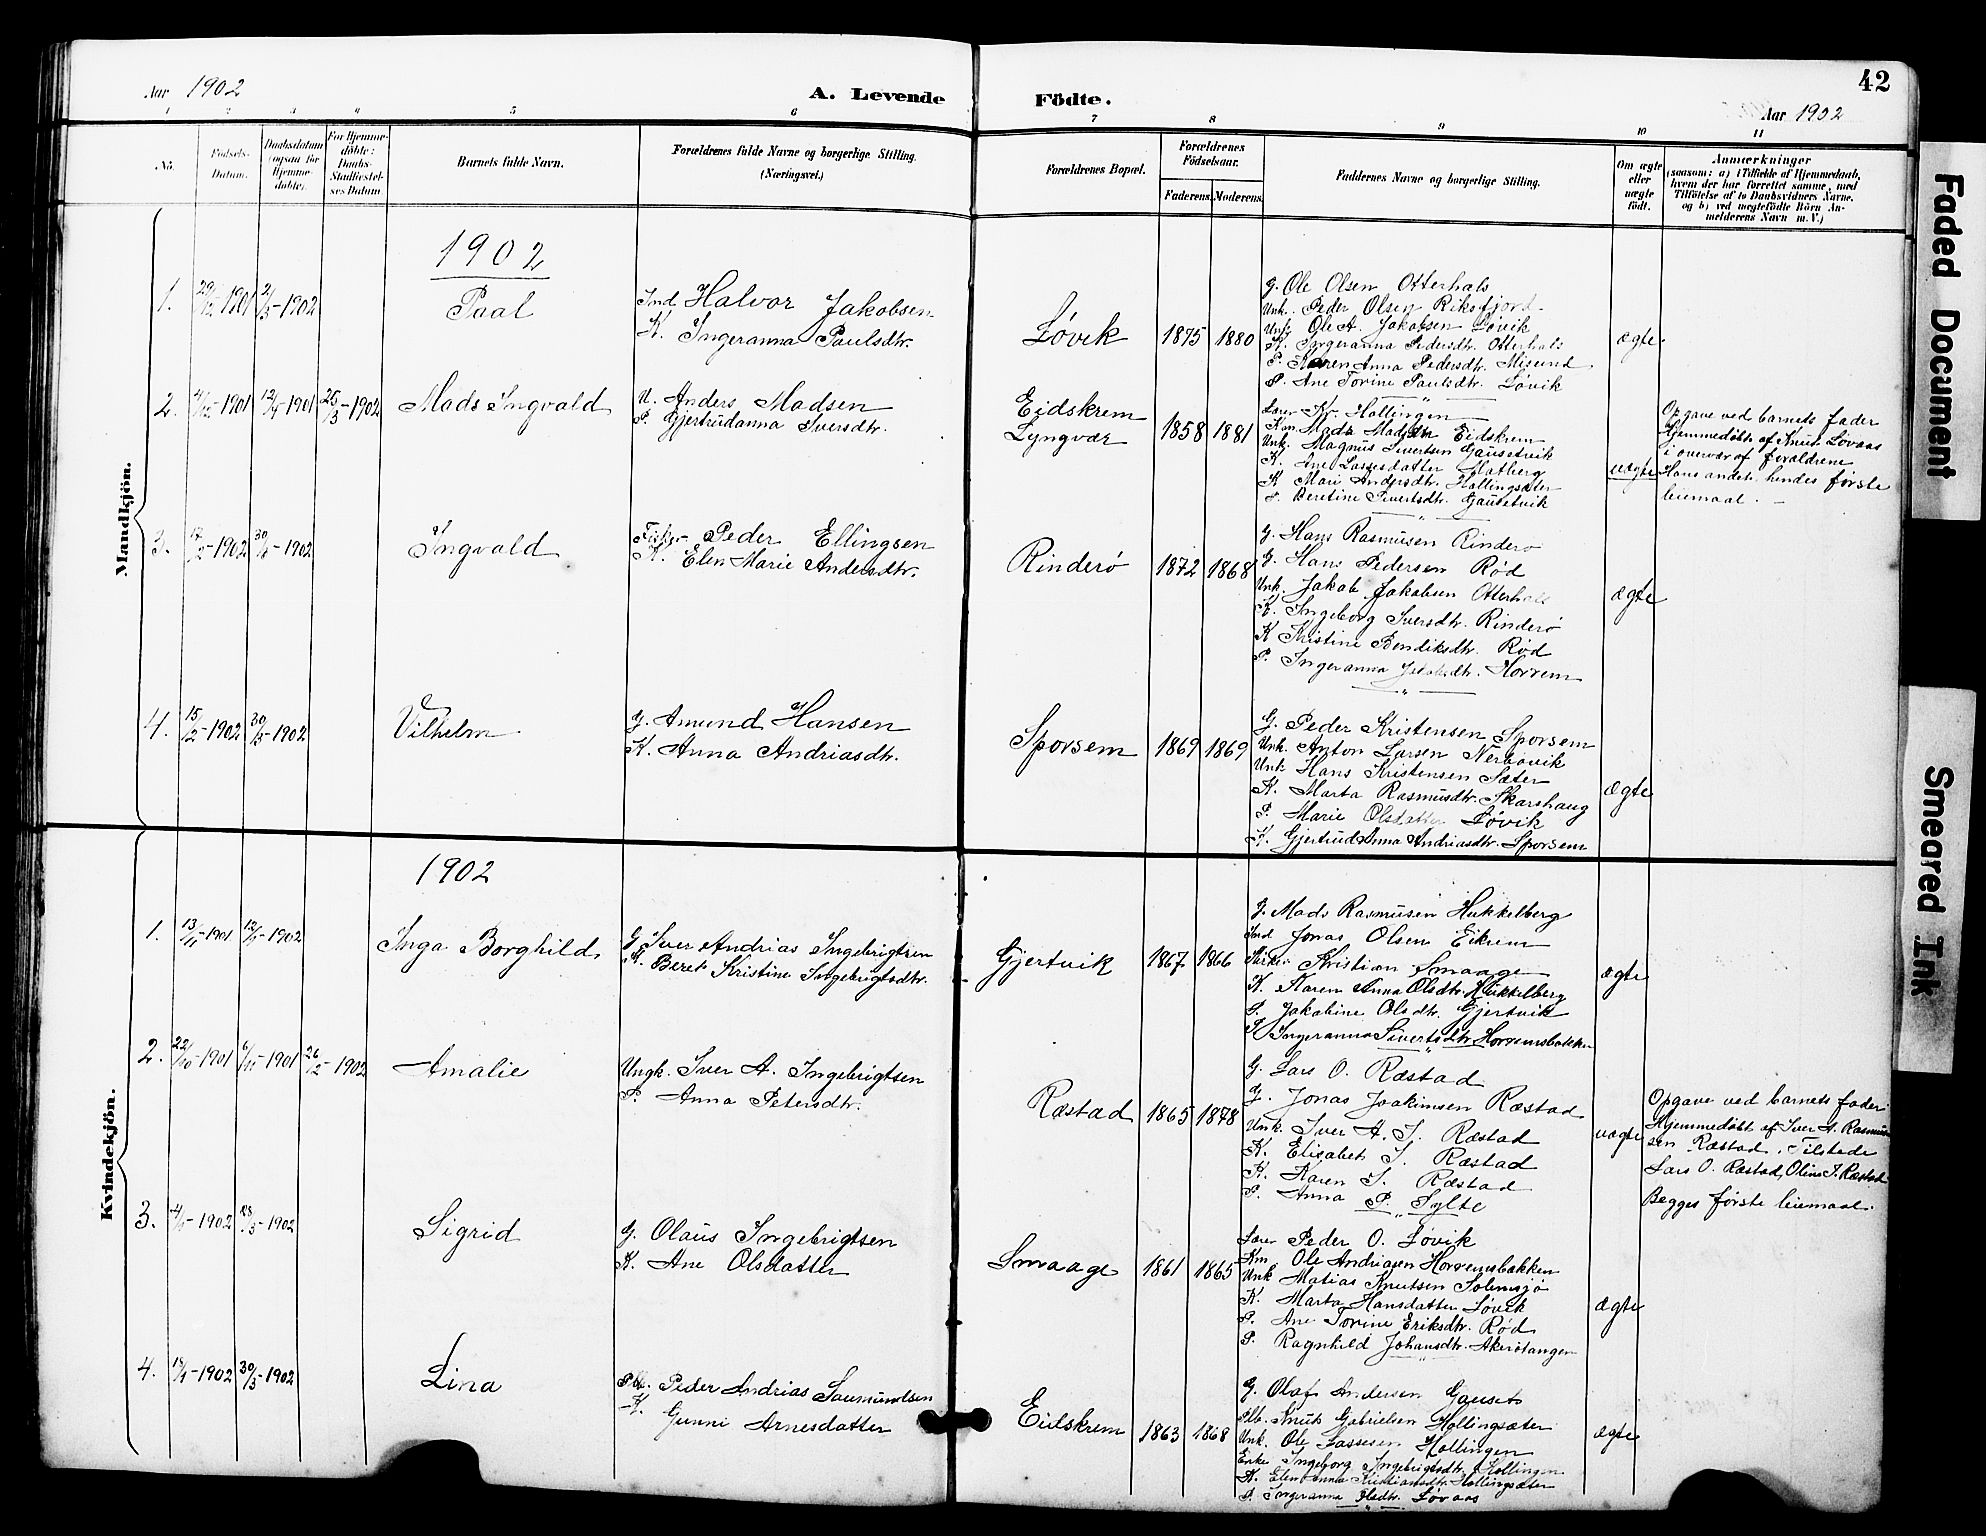 Aar 1902
A. Levende Födte.
42
Aar 1902
1 2 3 4 5 6 7 8 9 10 11
No.
Fødsels-Datum.
Daabsdatum (ogsaa for Hjemme-døbte).
For Hjemme-døbte: Daabs-Stadfæstel-ses Datum
Barnets fulde Navn.
Forældrenes fulde Navne og borgerlige Stilling. (Næringsvei.)
Forældrenes Bopæl.
Forældrenes Födselsaar.
Faderens. Moderens.
Faddernes Navne og borgerlige Stilling.
Om ægte eller uægte født.
Anmærkninger
(saasom: a) i Tilfælde af Hjemmedaab,
hvem der har forrettet samme, med
Tilföielse af to Daabsvidners Navne,
og b) ved uægtefödte Börn An-
melderens Navn m. V.)
Mandkjön.
1902
1. 29/12-1901 2/3-1902
Paal
Ind. Halvor Jakobsen
K. Ingeranna Paulsdtr.
Løvik 1875 1880
G. Ole Olsen Otterhals
Unk. Peder Olsen Riksfjord
Unk. Ole A. Jakobsen Løvik
K. Ingeranna Pedersdtr. Otterhals
P. Karen Anna Pedersdtr. Misund
P. Ane Torine Paulsdtr. Løvik
ægte
2. 4/12-1901 -1901 25/3-1902
Mads Ingvald
U. Anders Madsen
P. Gjertrudanna Iversdtr.
Eidskrem
Lyngvær
1858 1881
Lærer Kr. Hollingen
Kan. Mads Madsen Eidskrem
Unk. Magnus Sivertsen Gausetvik
K. Ane Lassesdatter Hatberg
K. Mari Andersdtr. Hollingsæter
P. Beretine Sivertsdtr. Gausetvik
uægte
Opgave ved barnets fader
Hjemmedøbt af Knut Løvaas
i overvær af forældrene
Hans andet hendes første
leiemaal. -
3. 17/2-1902 -1902
Ingvald
Fisker Peder Ellingsen
K. Elen Marie Andersdtr.
Rinderø 1872 1868
G. Hans Rasmusen Rinderø
G. Hans Pedersen Rød
Unk. Jakob Jakobsen Otterhals
K. Ingeborg Iversdtr. Rinderø
K Kristine Bendiksdtr. Rød
P. Ingeranna Horrem
ægte
4. 15/2-1902 30/3-1902
Vilhelm
G. Amund Hansen
K. Anna Andriasdtr.
Sporsem 1869 1869
G. Peder Kristensen Sporsem
Unk. Anton Larsen Nerbøvik
Unk Hans Kristensen Sæter
K. Marta Rasmusdtr. Skarshaug
P. Marie Olsdatter Løvik
K. Gjertrud Anna Andriasdtr. Sporsem
ægte
Kvindekjön.
1902
1. 13/11-1901 -1902
Inga Borghild
G Iver Andrias Ingebrigtsen
K. Beret Kristine Ingebrigtsdtr.
Gjertvik 1867 1866
G. Mads Rasmusen Hukkelberg
Ind Jonas Olsen Eikrem
Kristian Smaage
K. Karen Anna Olsdtr. Hukkelberg
P. Jakobine Olsdtr. Gjertvik
P Ingeranna Sivertsdtr. Horremsbakken
ægte
2. 22/10-1901 -1901 26/2-1902
Amalie
Ungk. Iver A. Ingebrigtsen
P. Anna Petersdtr.
Ræstad 1865 1878
G. Lars O. Ræstad
G. Jonas Joakimsen Ræstad
Unk. Iver A. I. Ræstad
K. Elisabet I. Ræstad
K. Karen I. Ræstad
P. Anna P. Sylte
uægte
Opgave ved barnets fader
Hjemmedøbt af Iver A. Rasmus-
sen Ræstad. Tilstede
Lars O. Ræstad, Oline I. Ræstad
Begges første leiemaal.
3. -1902 -1902
Sigrid
G. Olaus Ingebrigtsen
K. Ane Olsdatter
Smaage 1861 1865
Lærer Peder O. Løvik
Km Ole Andriasen Horremsbakken
Unk Matias Knutsen Solemsjø
K. Marta Hansdatter Løvik
P. Ane Torine Eriksdtr. Rød
P. Ragnhild Johansdtr. Akerøtangen
ægte
4. -1902 30/3-1902
Lina
Plb. Peder Andrias Saumundsen
K. Gunni Arnesdatter
Eidskrem 1863 1868
G. Olaf Andersen Gauset
Plb. Knut Gabrielsen Hollingsæter
Unk. Ole Lassesen Hollingen
Enke Ingeborg Ingebrigtsdtr. Hollingen
K. Elen Anna Kristiansdtr. Hollingsæter
P. Ingeranna Olsdtr. Løvaas
ægte
Faded Document
Smeared Ink